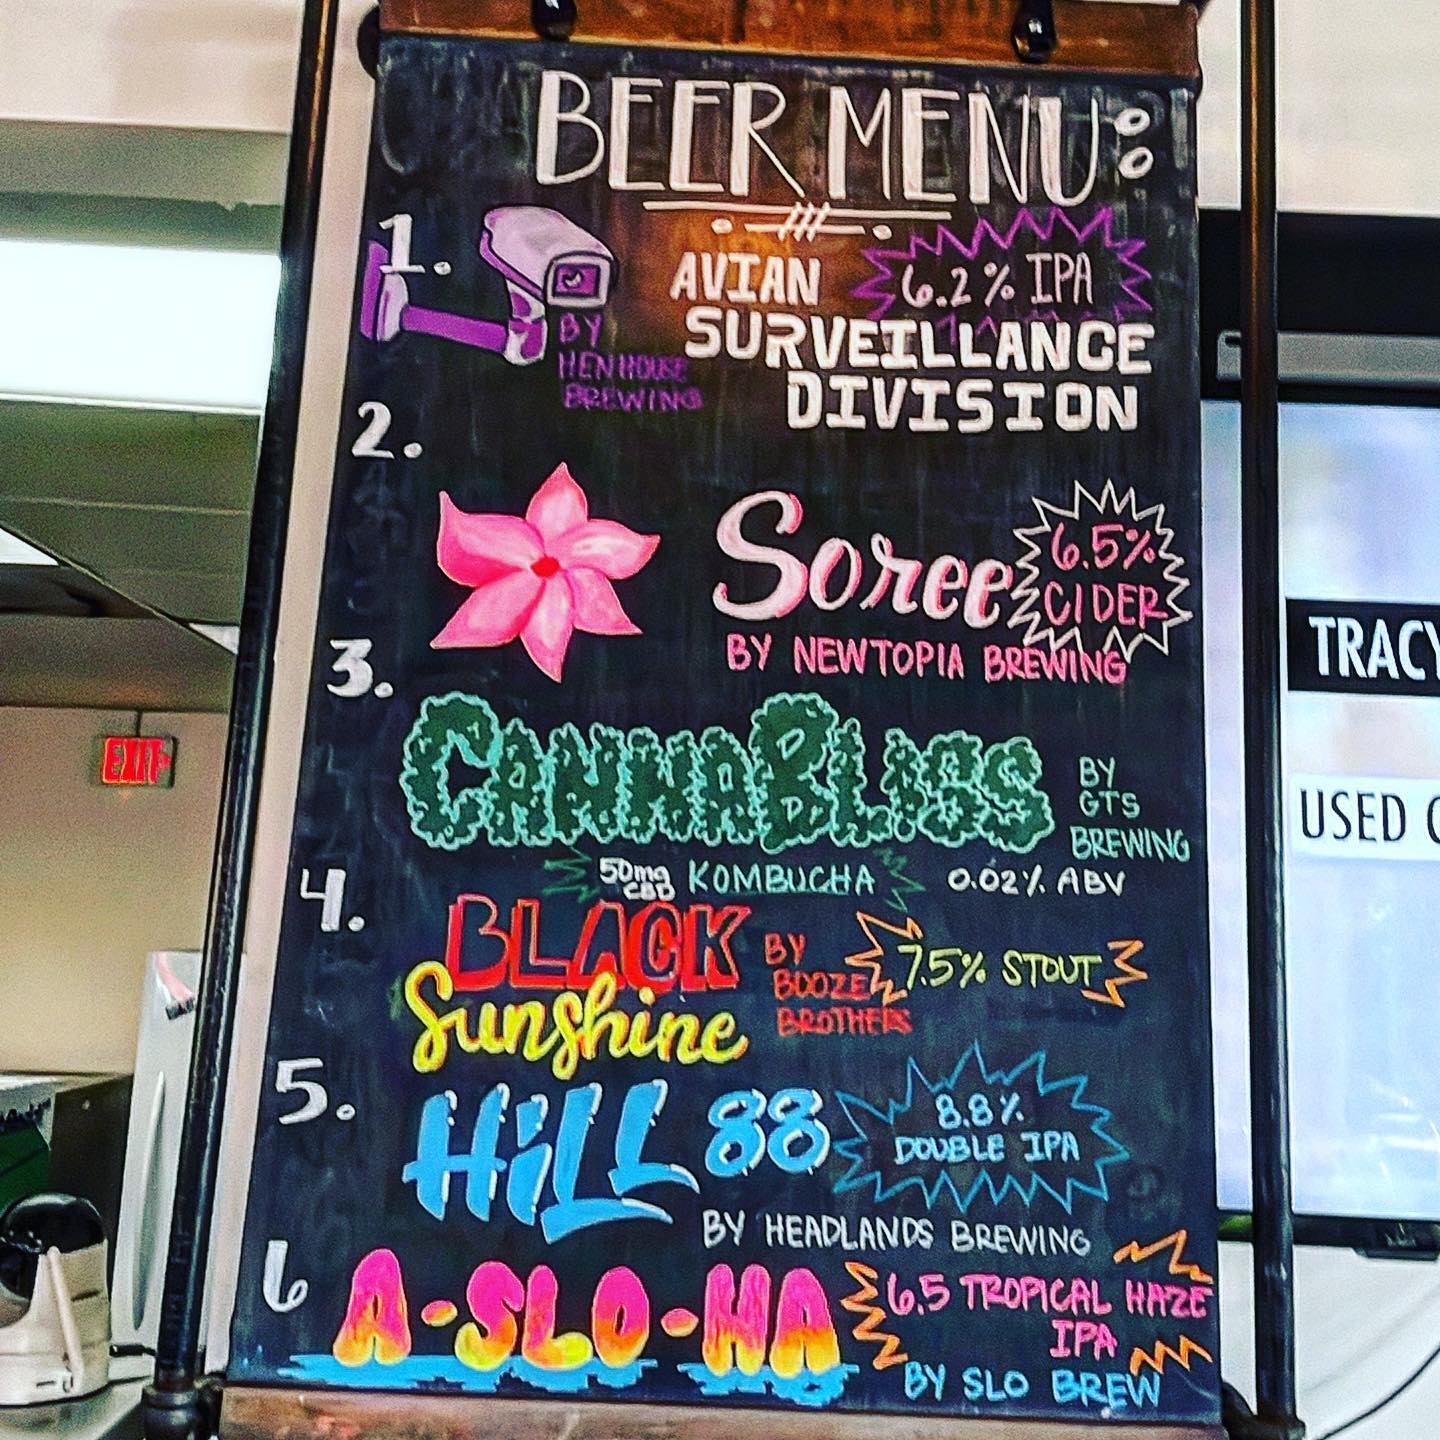 BEER MENU:
1.
AVIAN
6.2% IPA
SURVEILLANCE
DIVISION
BY
HENHOUSE
BREWING
2.
Soree
6.5%
CIDER
BY NEWTOPIA BREWING
3.
CANNABLISS
BY
GTS
BREWING
50mg
CBD
KOMBUCHA
0.02% ABV
4.
BLACK
Sunshine
BY
BOOZE
BROTHERS
7.5% STOUT
5.
HiLL 88
8.8%
DOUBLE IPA
BY HEADLANDS BREWING
6
A-SLO-HA
6.5 TROPICAL HAZE
IPA
BY SLO BREW
EXIT
TRACY
USED